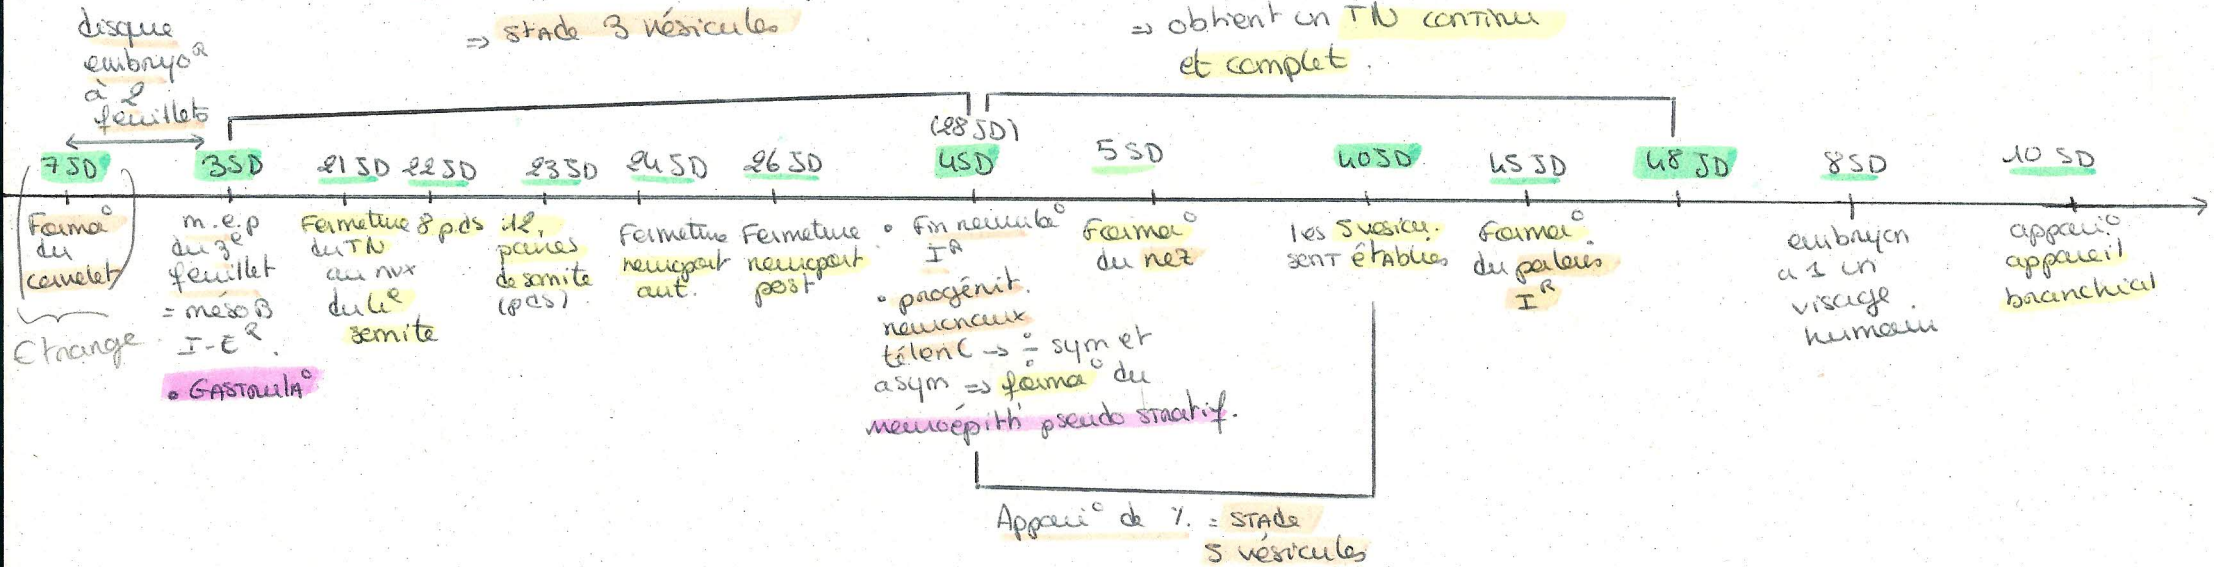 disque
embryo°R
à 2
feuillets
⇒ stade 3 vésicules
⇒ obtient un TN continu
et complet.
(28 JD)
7 JD
3SD
21 JD
22 JD
23 JD
24 JD
26 JD
4SD
5 SD
40 JD
45 JD
48 JD
8 SD
10 SD
Forma°
du
Etrange
m.e.p
du 3e
feuillet
= mésoB
I-ER.
• GASTRULA°
Fermeture
du TN
au nvx
du 4e
somite
8 pds
12
paires
de somite
(pds)
Fermeture
neuroport
ant.
Fermeture
neuroport
post
• Fin neurula°
IR
• progénit.
neuronaux
télenC → ÷ sym et
asym ⇒ forma° du
neuroépith pseudo stratif.
Forma°
du nez
les 5 vésicu.
sont établies
Forma°
du palais
IR
embryon
a 1 un
visage
humain
appari°
appareil
branchial
Appari° de %. = STAde
5 vésicules